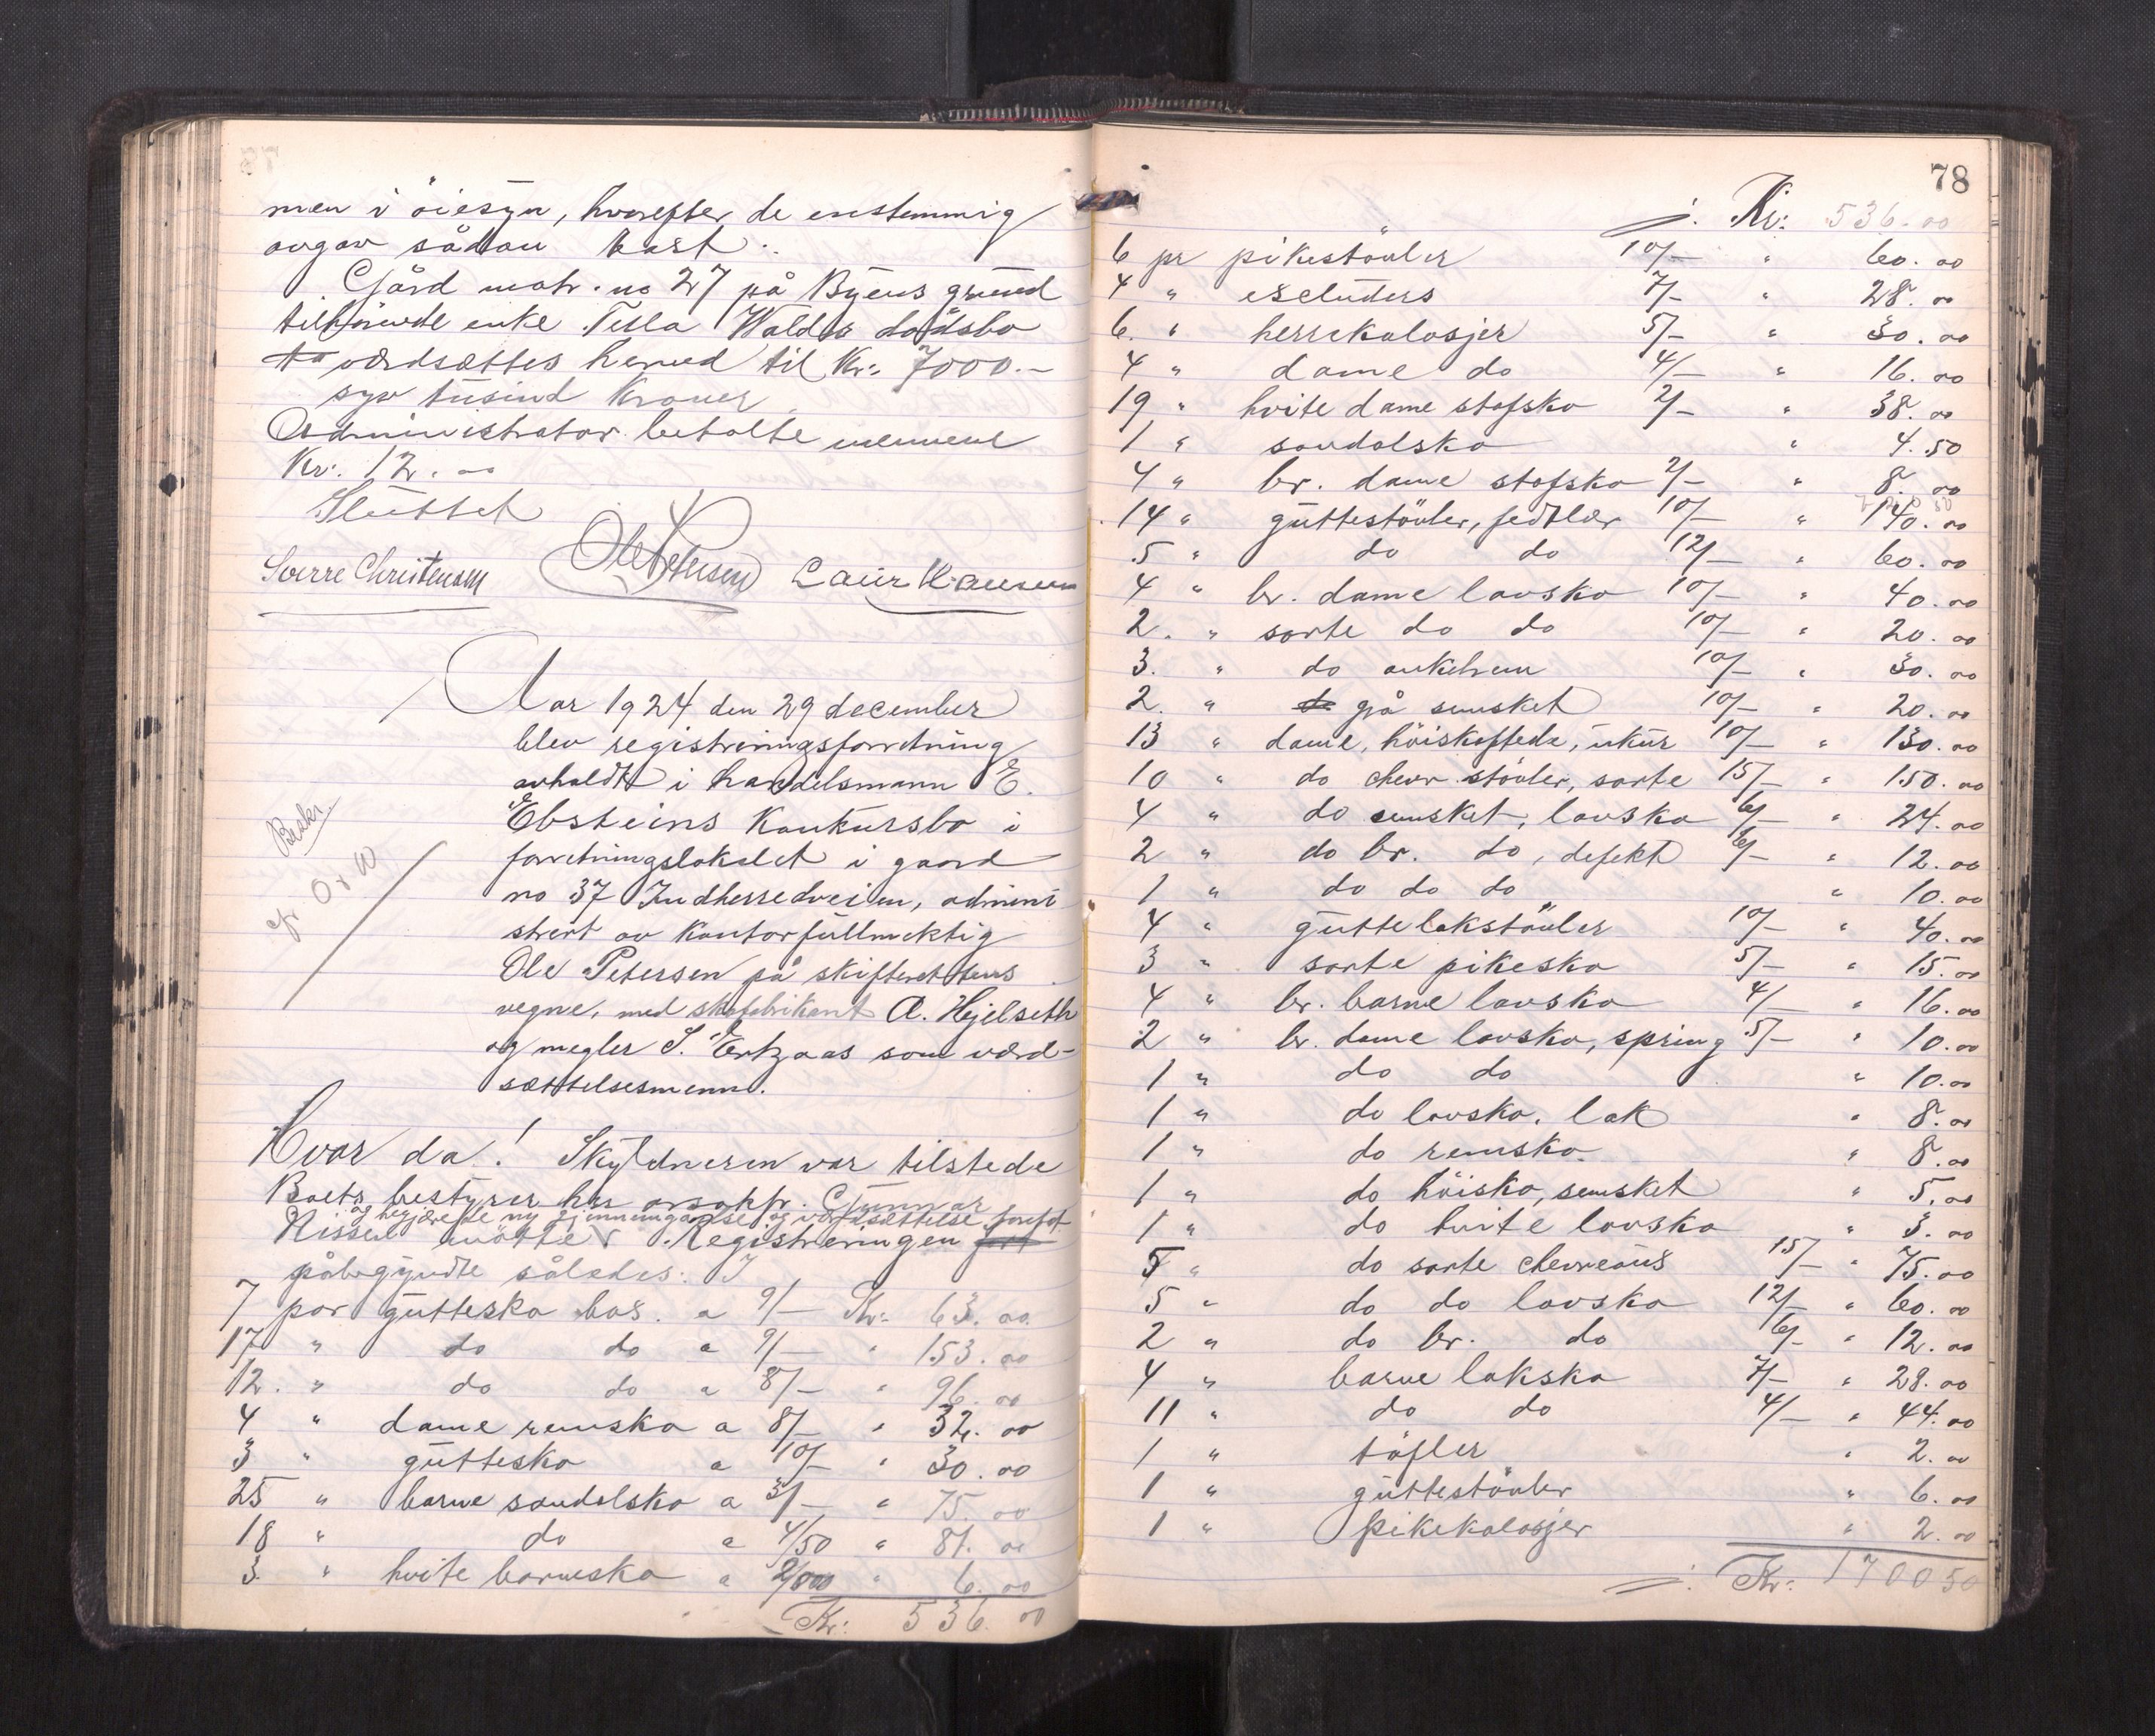 men i öiesyn, hvorefter de enstemmig
avgav sådan takst:
Gård matr. no 27 på Byens grund
tilhörende enke Tella Walds dødsbo
værdsættes herved til Kr: 7000.-
syv tusind Kroner
Administrator betalte mennene
Kr: 12.00
Sluttet
Sverre Christensen Ole Petersen Laur Hansen
Aar 1924 den 29 december
blev registreringsforretning
avholdt i handelsmann E.
Ebsteins Konkursbo i
forretningslokalet i gaard
no 37 Indherredveien, admini
strert av Kontorfullmektig
Ole Petersen på skifterettens
vegne, med skofabrikant A. Hjelseth
og megler S. Ertzaas som værd-
sættelsesmenn.
Beskr.
Hvor da! Skyldneren var tilstede
Boets bestyrer hrr orsakfr. Gunnar
og begjærede ny gjennemgåelse og værdsættelse foretat
Nissen mötte. Registreringen fort
påbegyndte således:
7 par gutteskо box. a 9/- Kr: 63.00
17 " do do a 9/- " 153.00
12. " do do a 8/- " 96.00
4 " dame remsko a 8/- " 32.00
3 " guttesko a 10/- " 30.00
25 " barne sandalsko a 3/- " 75.00
18 " do a 4/50 " 81.00
3. " hvite barnesko a 2/00 " 6.00
Kr: 536.00
78
Kr: 536.00
6 pr pikestövler 10/- " 60.00
4 " excluders 7/- " 28.00
6. " herrekalosjer 5/- " 30.00
4 " dame do 4/- " 16.00
19 " hvite dame stofsko 2/- " 38.00
1 " sandalsko " 4.50
4 " br. dame stofsko 2/- " 8.00
14 " guttestövler, fedtlær 10/- " 140.00
5 " do do 12/- " 60.00
4 " br. dame lavsko 10/- " 40.00
2. " sorte do do 10/- " 20.00
3. " do ankelrem 10/- " 30.00
2. " do grå semsket 10/- " 20.00
13 " dame, höiskaftede, ukur 10/- " 130.00
10 " do chevr. stövler, sorte 15/- " 150.00
4 " do semsket, lavsko 6/- " 24.00
2 " do br. do, defekt 6/- " 12.00
1 " do do do " 10.00
4 " gutte lakstövler 10/- " 40.00
3 " sorte pikesko 5/- " 15.00
4 " br. barne lavsko 4/- " 16.00
2 " br. dame lavsko, spring 5/- " 10.00
1 " do do " 10.00
1 " do lavsko, lak " 8.00
1 " do remsko. " 8.00
1 " do höisko, semsket " 5.00
1 " do hvite lavsko " 3.00
5 " do sorte chevreaus 15/- " 75.00
5 " do do lavsko 12/- " 60.00
2 " do br. do 6/- " 12.00
4 " barne laksko 7/- " 28.00
11 " do do 4/- " 44.00
1 " töfler " 2.00
1 " guttestövler " 6.00
1 " pikekalosjer " 2.00
Kr: 1700 50